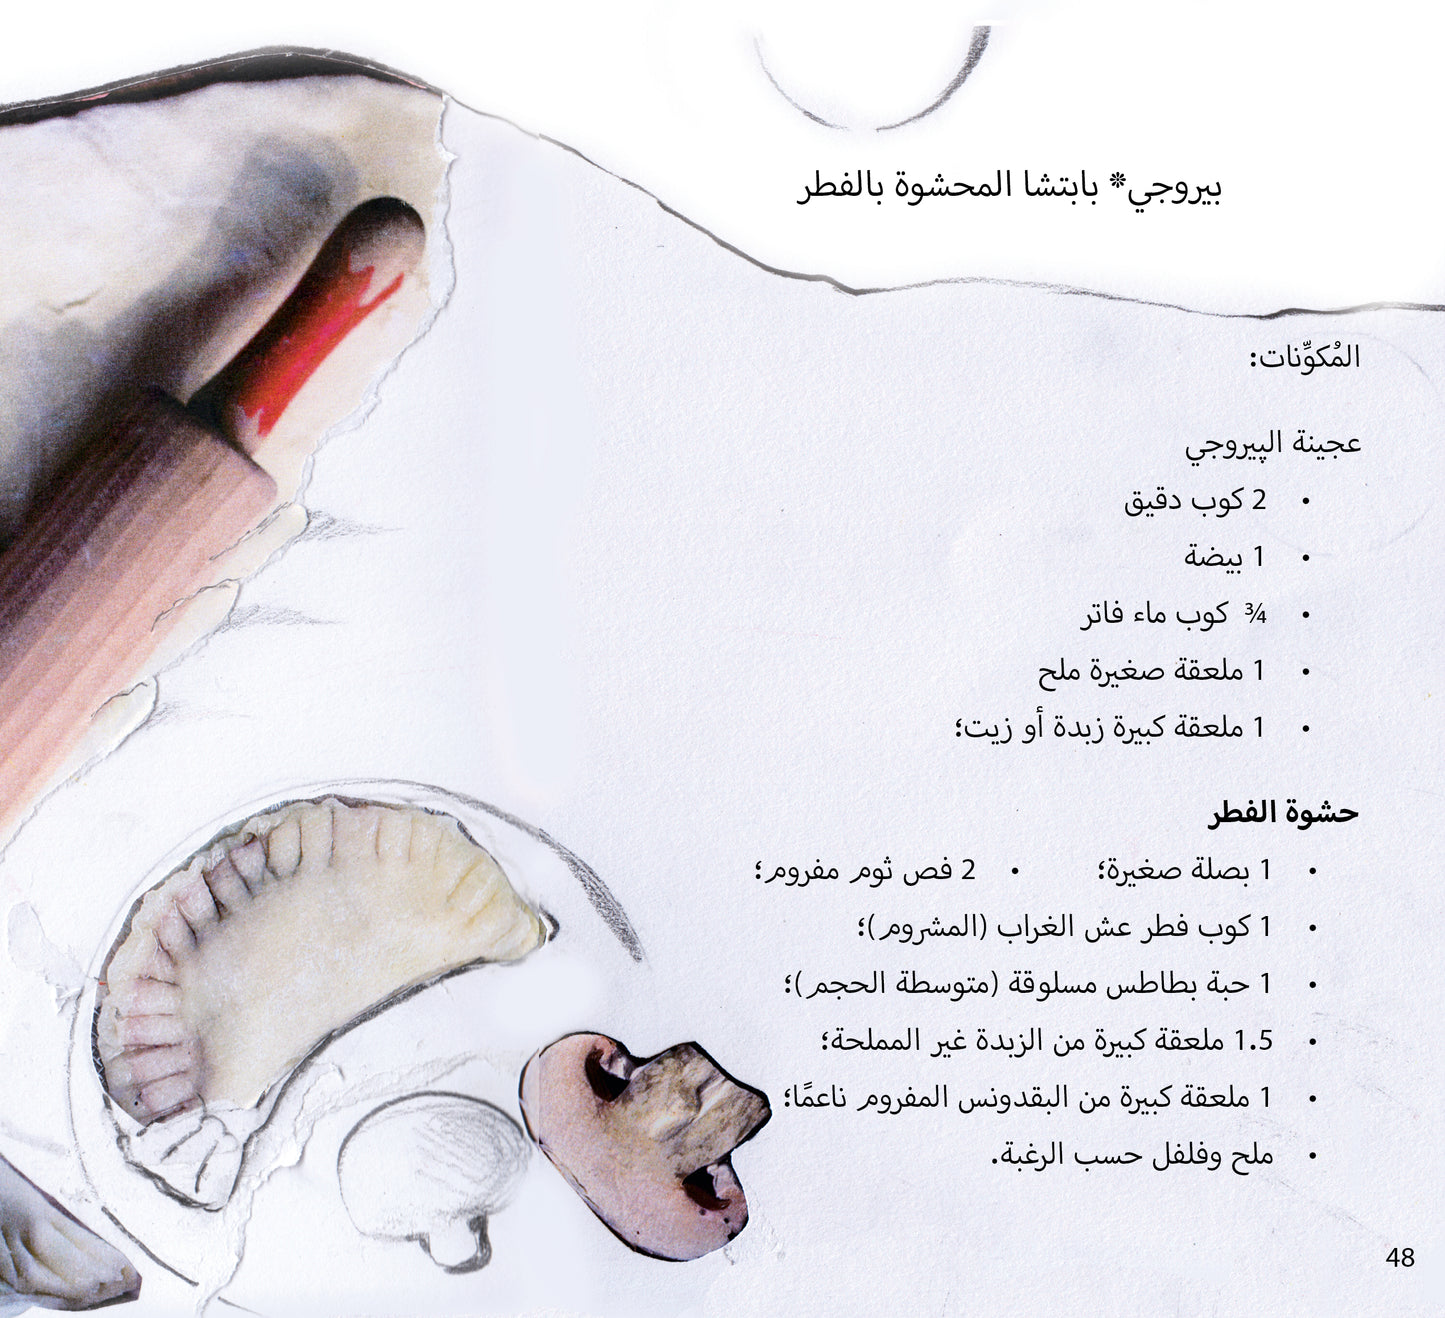 بيروجي* بابتشا المحشوة بالفطر
المُكوِّنات:
عجينة الپيروجي
• 2 كوب دقيق
• 1 بيضة
• ¾ كوب ماء فاتر
• 1 ملعقة صغيرة ملح
• 1 ملعقة كبيرة زبدة أو زيت؛
حشوة الفطر
• 1 بصلة صغيرة؛ • 2 فص ثوم مفروم؛
• 1 كوب فطر عش الغراب (المشروم)؛
• 1 حبة بطاطس مسلوقة (متوسطة الحجم)؛
• 1.5 ملعقة كبيرة من الزبدة غير المملحة؛
• 1 ملعقة كبيرة من البقدونس المفروم ناعمًا؛
• ملح وفلفل حسب الرغبة.
48